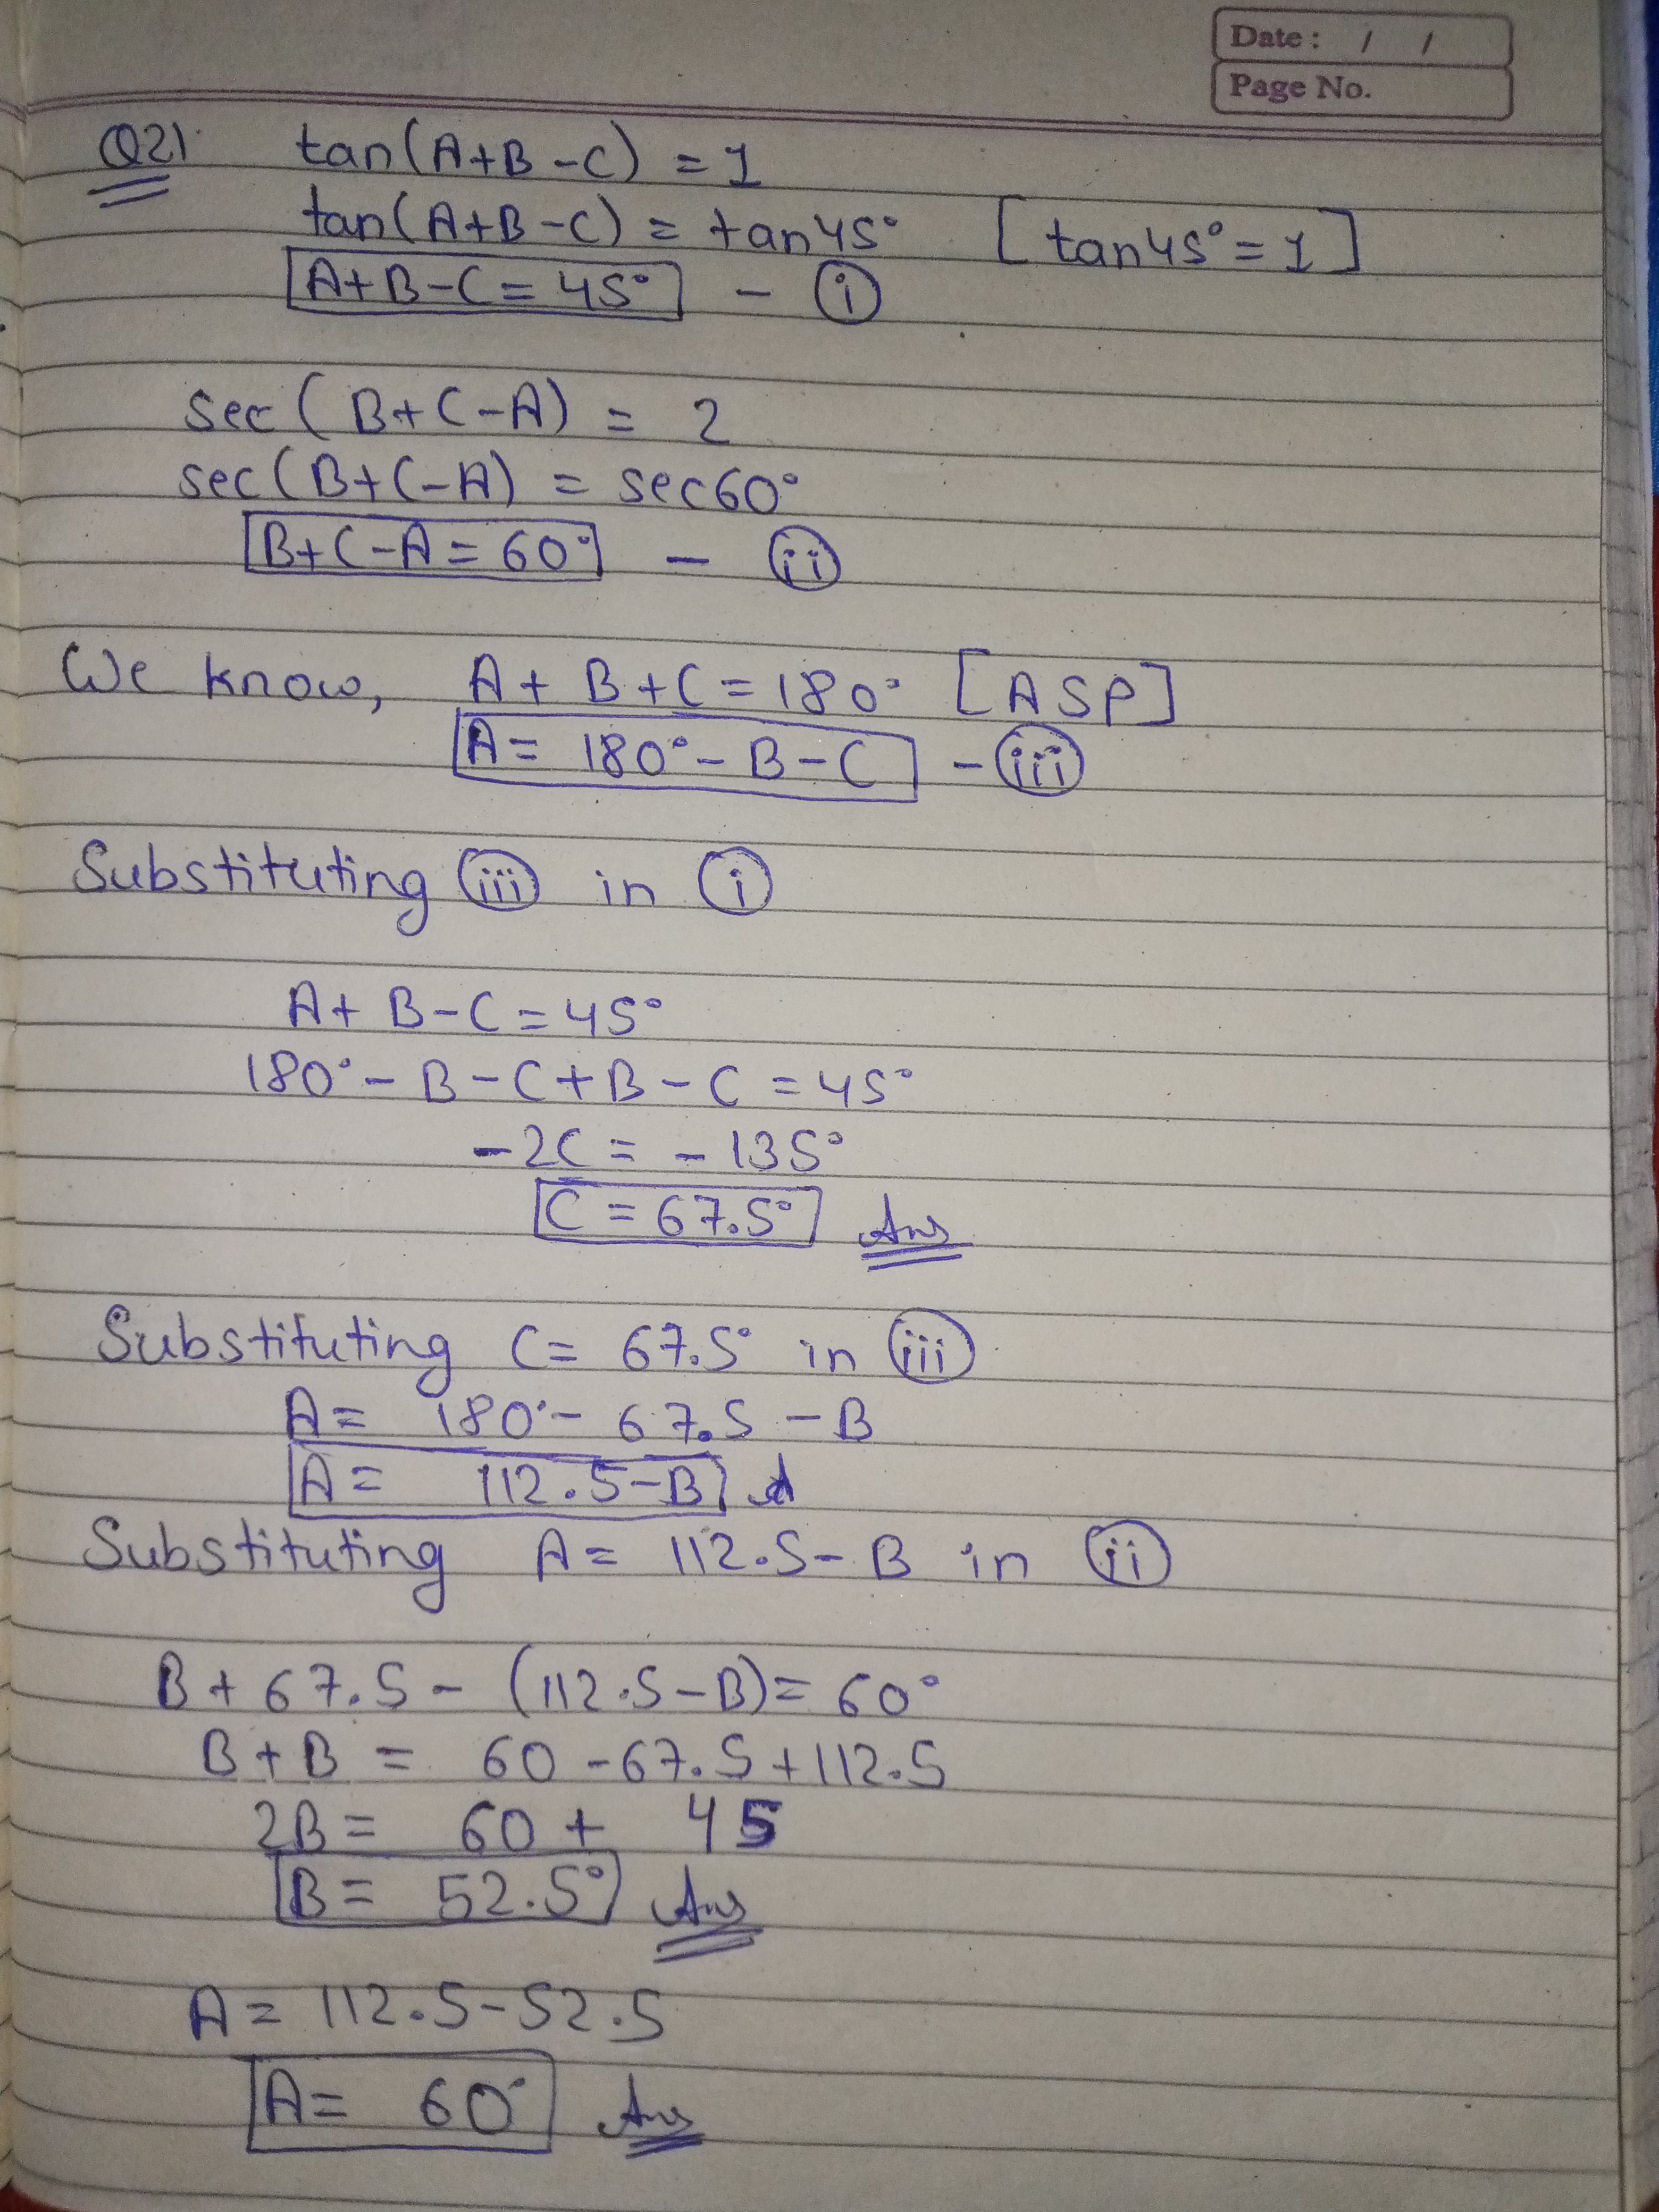 Date: / /
Page No.
Q21. tan(A+B-C) = 1
tan(A+B-C) = tan45° [tan45°=1]
A+B-C = 45° - (i)
sec(B+C-A) = 2
sec(B+C-A) = sec60°
B+C-A = 60° - (ii)
We know, A+B+C = 180° [ASP]
A = 180° - B - C - (iii)
Substituting (iii) in (i)
A+B-C = 45°
180° - B - C + B - C = 45°
-2C = -135°
C = 67.5° Ans
Substituting C = 67.5° in (iii)
A = 180° - 67.5 - B
A = 112.5-B
Substituting A = 112.5-B in (ii)
B + 67.5 - (112.5-B) = 60°
B + B = 60 - 67.5 + 112.5
2B = 60 + 45
B = 52.5° Ans
A = 112.5-52.5
A = 60° Ans